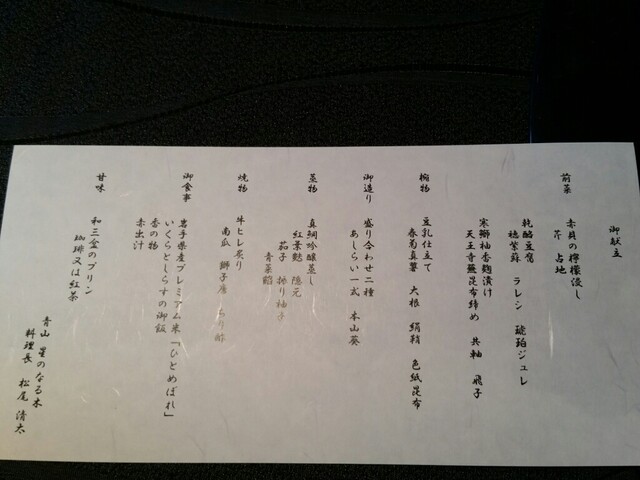 御献立
前菜
赤貝の檸檬浸し
芹 占地
乾酪豆腐
穂紫蘇 ラレシ 琥珀ジュレ
寒鰤柚香麹漬け
天王寺蕪昆布締め 共軸 飛子
椀物
豆乳仕立て
春菊真薯 大根 絹鞘 色紙昆布
御造り
盛り合わせ二種
あしらい一式 本山葵
蒸物
真鯛吟醸蒸し
紅葉麩 隠元
茄子 振り柚子
青菜餡
焼物
牛ヒレ炙り
南瓜 獅子唐 酢
御食事
岩手県産プレミアム米「ひとめぼれ」
いくらとしらすの御飯
香の物
赤出汁
甘味
和三盆のプリン
珈琲又は紅茶
青山 星のなる木
料理長 松尾 清太